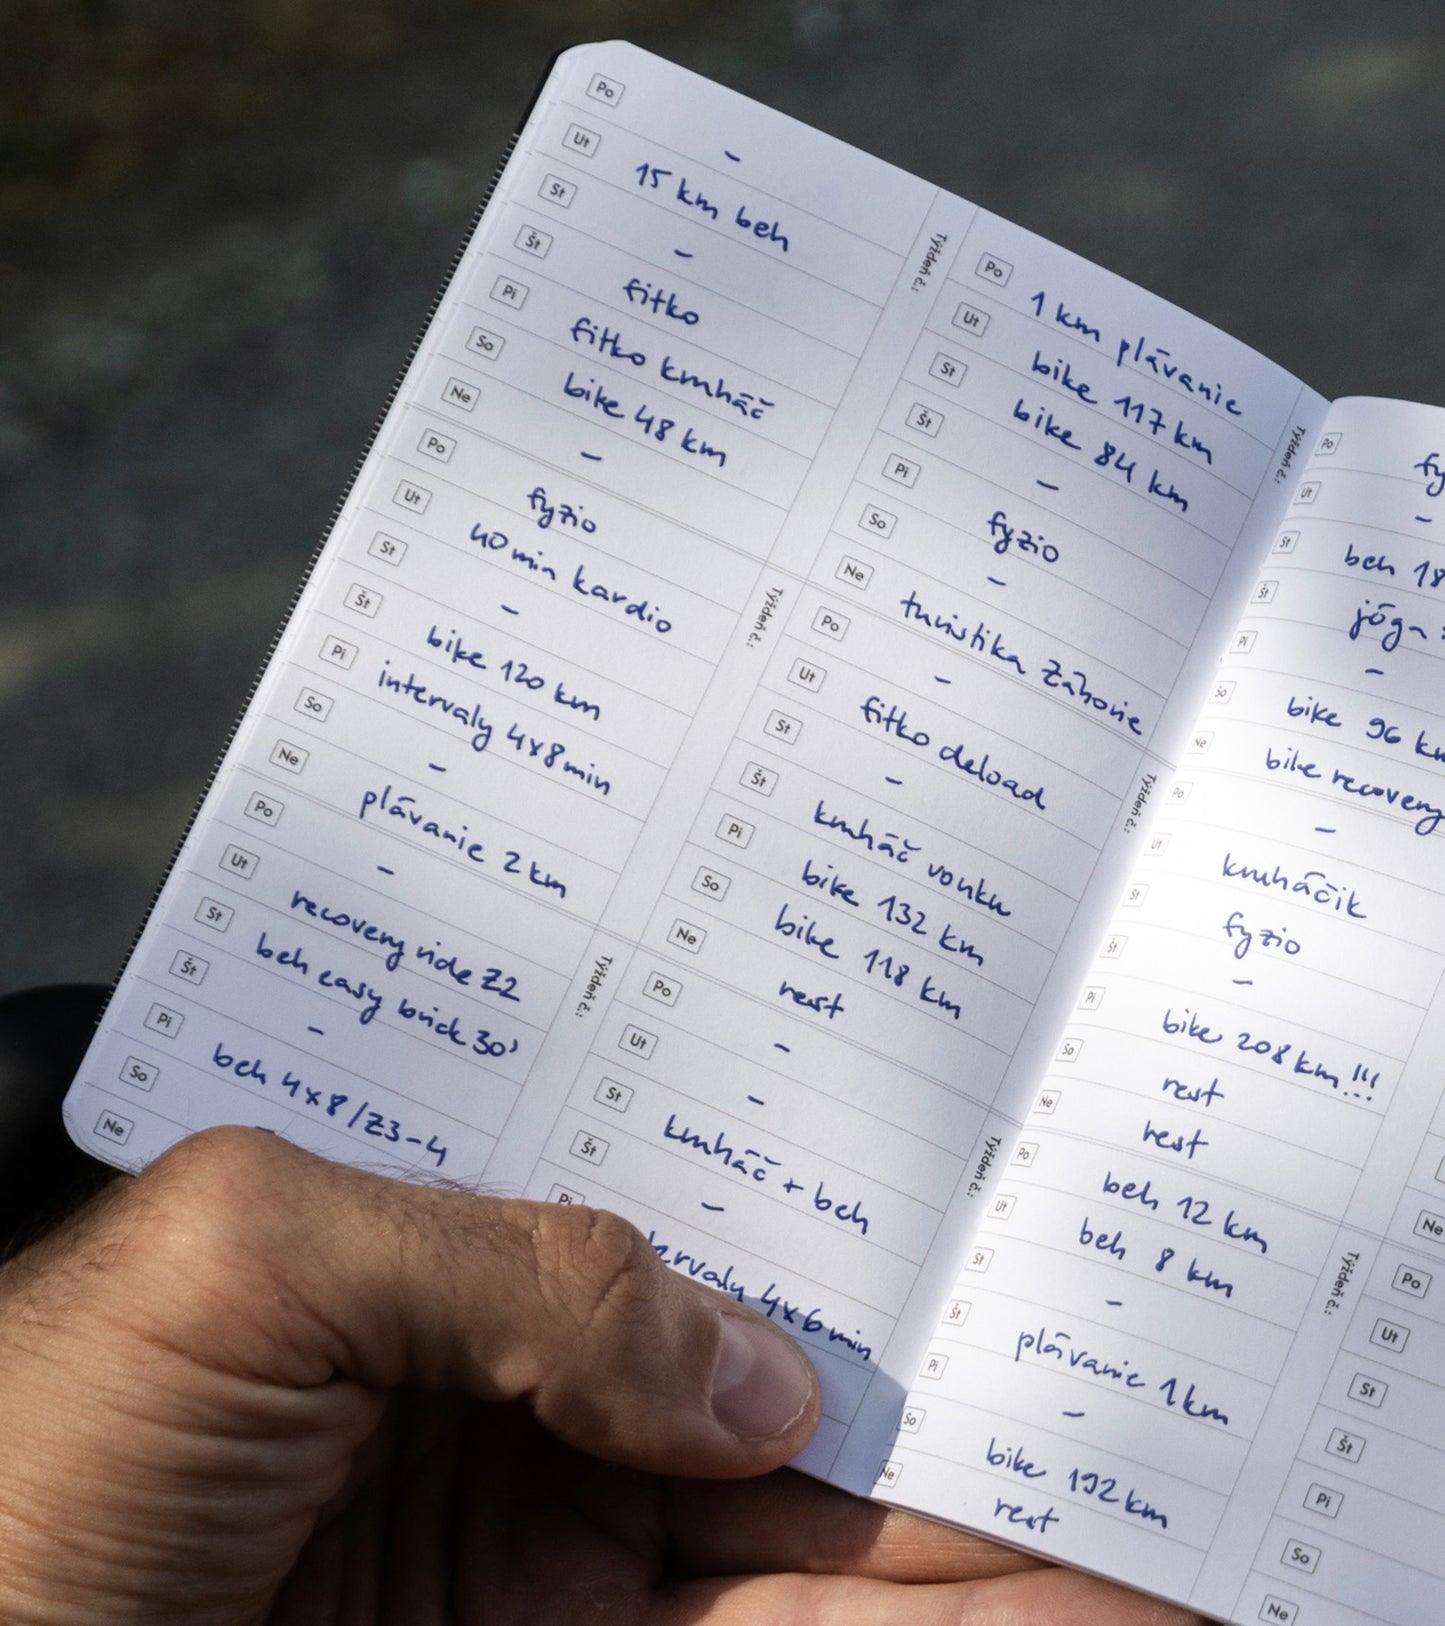 Po -
Ut 15 km beh
St -
Št fitko
Pi fitko kruháč
So bike 48 km
Ne -
Po fyzio
Ut 40 min kardio
St -
Št bike 120 km
Pi intervaly 4x8min
So -
Ne plávanie 2 km
Po -
Ut recovery ride Z2
St beh easy brick 30'
Št -
Pi beh 4x8/Z3-4
So -
Ne
Týždeň č.:
Po 1 km plávanie
Ut bike 117 km
St bike 84 km
Št -
Pi fyzio
So -
Ne turistika Záhorie
Týždeň č.:
Po -
Ut fitko deload
St -
Št kruháč vonku
Pi bike 132 km
So bike 118 km
Ne rest
Týždeň č.:
Po -
Ut -
St kruháč + beh
Št -
Pi 4x6min
Týždeň č.:
Po
Ut -
St beh 18
Št jóga
Pi -
So bike 96 km
Ne bike recovery
Týždeň č.:
Po -
Ut kruháčik
St fyzio
Št -
Pi bike 208 km!!!
So rest
Ne rest
Týždeň č.:
Po beh 12 km
Ut beh 8 km
St -
Št plávanie 1km
Pi -
So bike 192km
Ne rest
Ne
Týždeň č.:
Po
Ut
St
Št
Pi
So
Ne